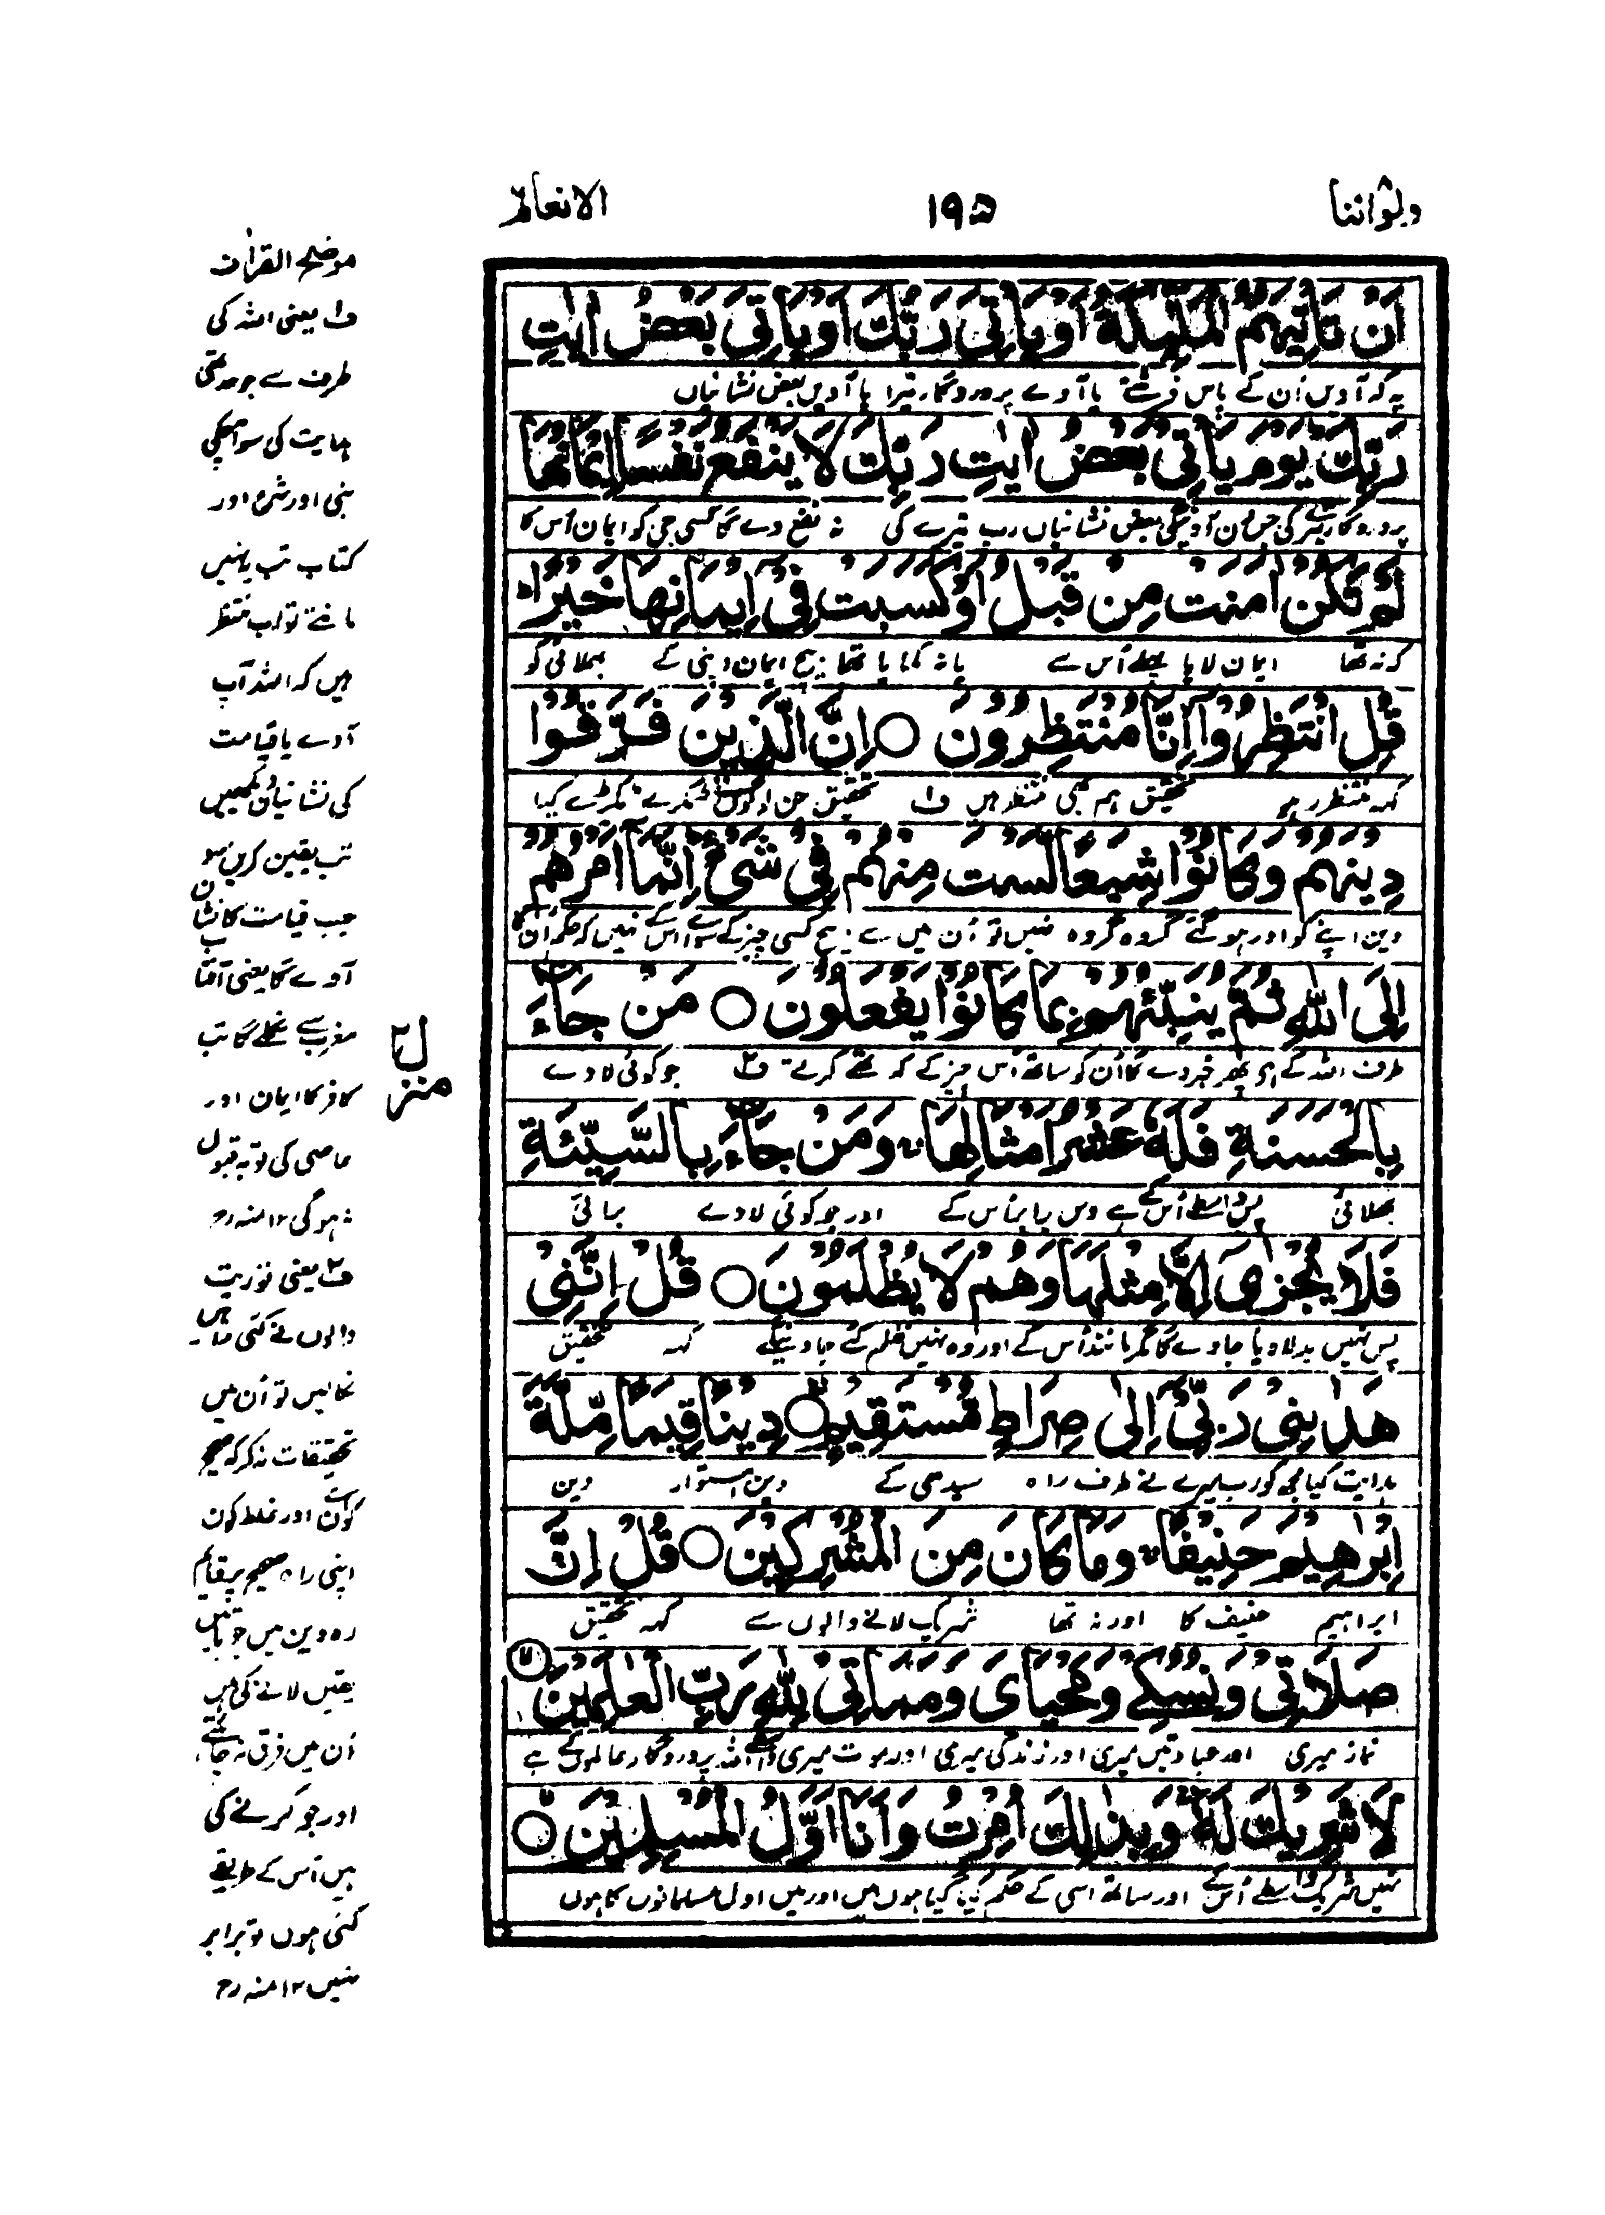 ولو اننا ۸
۱۹۵
الانعام ۶
اَنْ تَاْتِیَهُمُ الْمَلٰٓئِكَةُ اَوْ یَاْتِیَ رَبُّكَ اَوْ یَاْتِیَ بَعْضُ اٰیٰتِ
یہ کہ آویں اُن کے پاس فرشتے یا آوے پروردگار تیرا یا آویں بعض نشانیاں
رَبِّكَ یَوْمَ یَاْتِیْ بَعْضُ اٰیٰتِ رَبِّكَ لَا یَنْفَعُ نَفْسًا اِیْمَانُهَا
پروردگار تیرے کی جس دن آوینگی بعض نشانیاں رب تیرے کی نہ نفع دے گا کسی جی کو ایمان اُس کا
لَمْ تَكُنْ اٰمَنَتْ مِنْ قَبْلُ اَوْ كَسَبَتْ فِیْۤ اِیْمَانِهَا خَیْرًا
کہ نہ تھا ایمان لایا پہلے اُس سے یا نہ کمایا تھا بیچ ایمان اپنی کے بھلائی کو
قُلِ انْتَظِرُوْۤا اِنَّا مُنْتَظِرُوْنَ ○ اِنَّ الَّذِیْنَ فَرَّقُوْا
کہہ منتظر رہو تحقیق ہم بھی منتظر ہیں ف۱ تحقیق جن لوگوں نے ٹکڑے ٹکڑے کیا
دِیْنَهُمْ وَكَانُوْا شِیَعًا لَّسْتَ مِنْهُمْ فِیْ شَیْءٍ اِنَّمَاۤ اَمْرُهُمْ
دین اپنے کو اور ہو گئے گروہ گروہ نہیں تو اُن میں سے بیچ کسی چیز کے سوائے اس کے نہیں کہ حکم اُن کا
اِلَى اللّٰهِ ثُمَّ یُنَبِّئُهُمْ بِمَا كَانُوْا یَفْعَلُوْنَ ○ مَنْ جَآءَ
طرف اللہ کے ہے پھر خبر دے گا اُن کو ساتھ اُس چیز کے کہ تھے کرتے ف۲ جو کوئی لاوے
بِالْحَسَنَةِ فَلَهٗ عَشْرُ اَمْثَالِهَا وَمَنْ جَآءَ بِالسَّیِّئَةِ
بھلائی پس واسطے اُس کے ہے دس برابر اُس کے اور جو کوئی لاوے برائی
فَلَا یُجْزٰۤى اِلَّا مِثْلَهَا وَهُمْ لَا یُظْلَمُوْنَ ○ قُلْ اِنَّنِیْ
پس نہیں بدلا دیا جاوے گا مگر مانند اُس کے اور وہ نہیں ظلم کئے جاوینگے کہہ تحقیق
هَدٰىنِیْ رَبِّیْۤ اِلٰى صِرَاطٍ مُّسْتَقِیْمٍ ○ دِیْنًا قِیَمًا مِّلَّةَ
ہدایت کیا مجھ کو رب میرے نے طرف راہ سیدھی کے دین استوار دین
اِبْرٰهِیْمَ حَنِیْفًا وَمَا كَانَ مِنَ الْمُشْرِكِیْنَ ○ قُلْ اِنَّ
ابراہیم حنیف کا اور نہ تھا شریک لانے والوں سے کہہ تحقیق
صَلَاتِیْ وَنُسُكِیْ وَمَحْیَایَ وَمَمَاتِیْ لِلّٰهِ رَبِّ الْعٰلَمِیْنَ
نماز میری اور عبادتیں میری اور زندگی میری اور موت میری واسطے اللہ پروردگار عالموں کے ہے
لَا شَرِیْكَ لَهٗ وَبِذٰلِكَ اُمِرْتُ وَاَنَا اَوَّلُ الْمُسْلِمِیْنَ ○
نہیں شریک واسطے اُس کے اور ساتھ اسی کے حکم کیا گیا ہوں میں اور میں اول مسلمانوں کا ہوں
منزل ۲
موضح القرآن
ف۱ یعنی اللہ کی
طرف سے جو حد تھی
ہدایت کی سو آچکی
نبی اور شرع اور
کتاب تب نہیں
مانتے تو اب منتظر
ہیں کہ اللہ آپ
آوے یا قیامت
کی نشانیاں دیکھیں
تب یقین کریں سو
جب قیامت کا نشان
آوے گا یعنی آفتاب
مغرب سے نکلے گا تب
کافر کا ایمان اور
عاصی کی توبہ قبول
نہ ہو گی ۱۲ منہ رح
ف۲ یعنی توریت
والوں نے کئی راہیں
نکالیں تو اُن میں
تحقیقات نہ کر کہ صحیح
کون ہے اور غلط کون
اپنی راہ صحیح پر قائم
رہ دین میں جو باتیں
یقین لانے کی ہیں
اُن میں فرق نہ چاہئے
اور جو کرنے کی
ہیں اُس کے طریقے
کئی ہوں تو برا
نہیں ۱۲ منہ رح